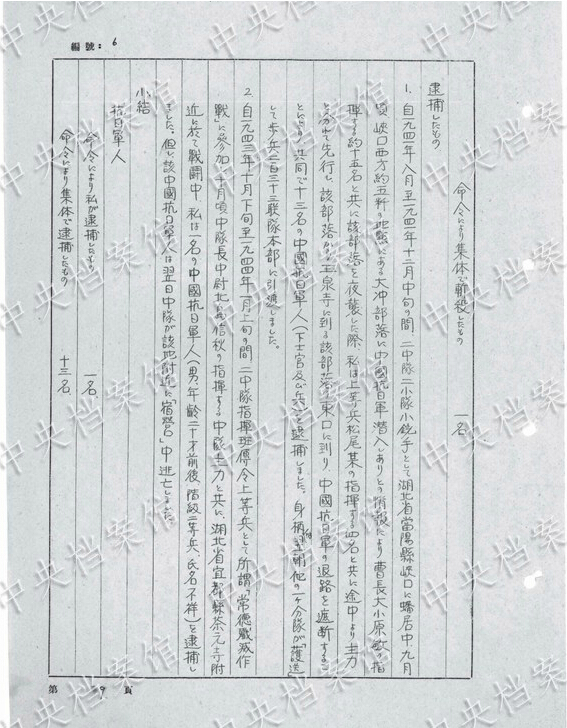 編號: 6
命令により集体で斬殺したもの 一名
逮捕したもの
1. 自一九四一年八月至一九四一年十二月中旬の間、二中隊二小隊小銃手として湖北省當陽縣峡口に蟠居中、九月
頃峡口西方約五粁の地點にある大冲部落に中國抗日軍潜入しありとの情報により曹長大小原敏の指
揮する約十五名と共に該部落を夜襲した際、私は上等兵松尾某の指揮する四名と共に途中より主力
と分れて先行し、該部落から玉泉寺に到る該部落の東口に到り、中國抗日軍の退路を遮断するこ
とにより共同で十三名の中國抗日軍人(下士官及び兵)を逮捕しました。身柄は他の一ヶ分隊が「護送」
して歩兵二百三十三联隊本部に引渡しました。
2. 自一九四三年十月下旬至一九四四年一月上旬の間、二中隊指揮班傳令上等兵として所謂「常德殲滅作
戦」に參加し十月頃中隊長中尉 信秋の指揮する中隊主力と共に、湖北省宜都縣茶元寺附
近に於て戰闘中、私は一名の中國抗日軍人(男、年齢二十才前後、階級二等兵、氏名不祥)を逮捕し
ました。但し該中國抗日軍人は翌日中隊が該地附近に「宿營」中逃亡しました。
小結
抗日軍人
命令により私が逮捕したもの 一名
命令により集体で逮捕したもの 十三名
第 9 頁
中央档案馆